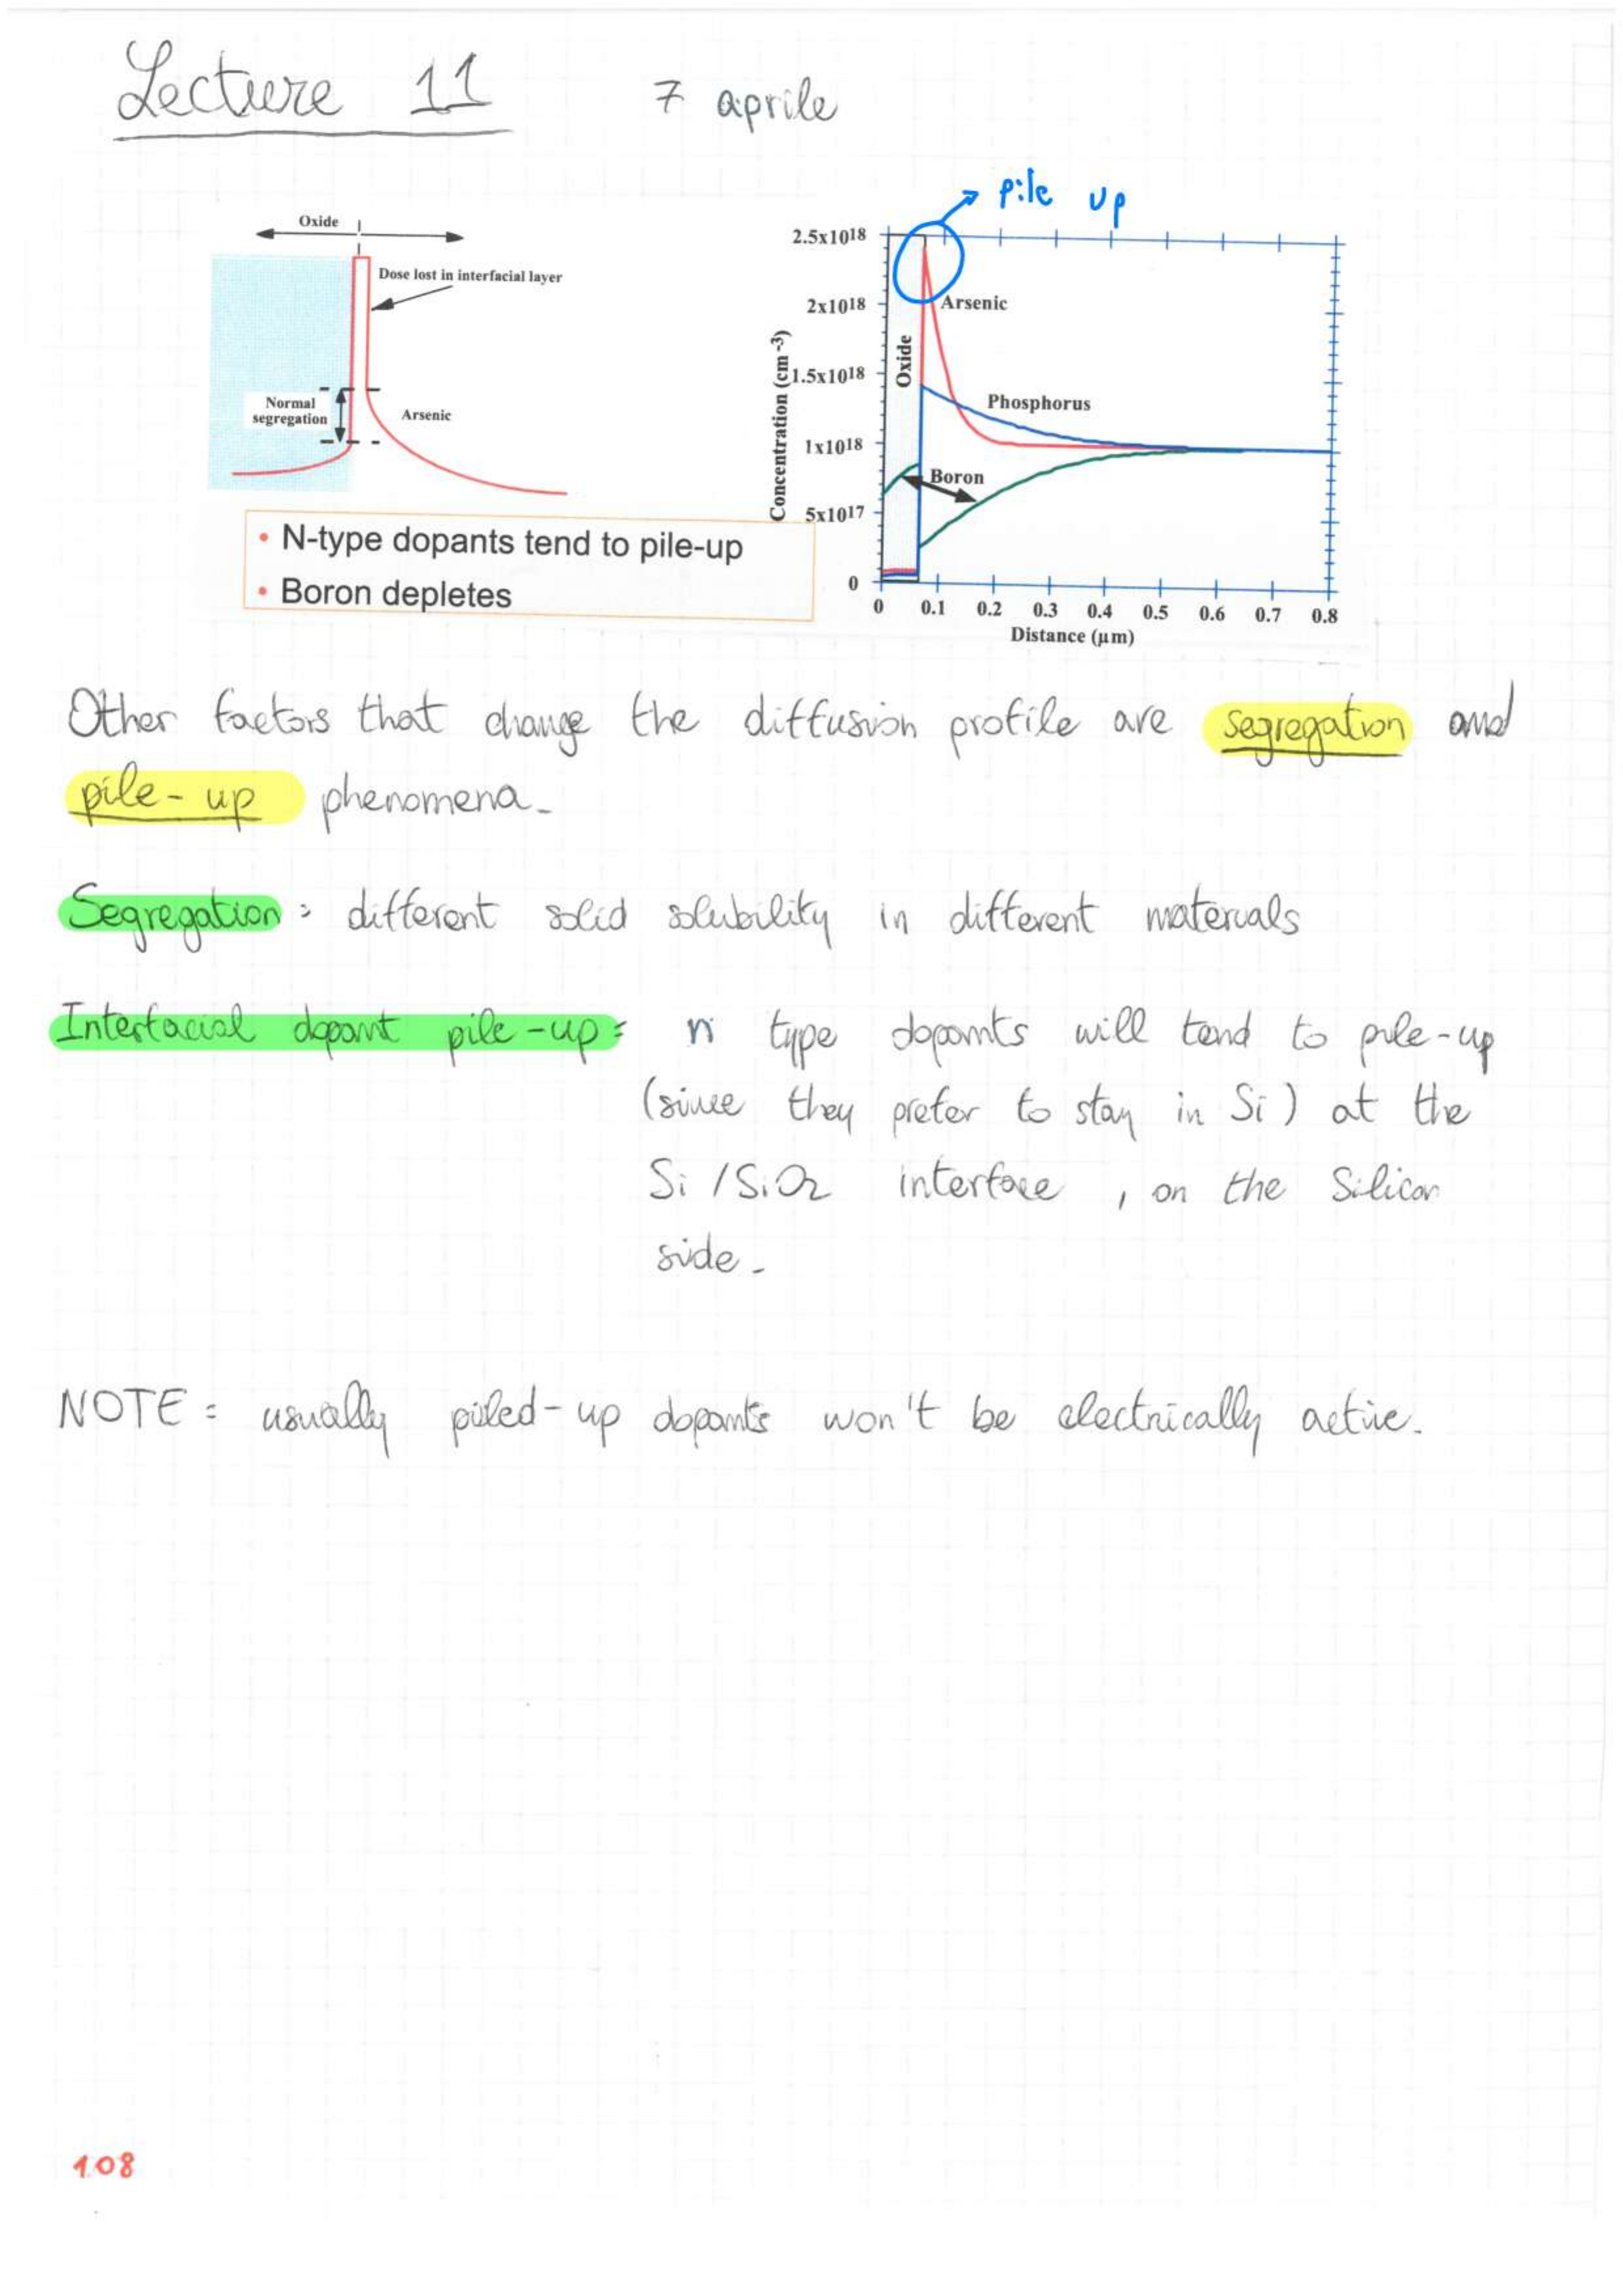 Lecture 11 7 aprile
Oxide
Dose lost in interfacial layer
Normal
segregation
Arsenic
• N-type dopants tend to pile-up
• Boron depletes
pile up
2.5x10¹⁸
2x10¹⁸
1.5x10¹⁸
1x10¹⁸
5x10¹⁷
0
Concentration (cm⁻³)
Oxide
Arsenic
Phosphorus
Boron
0 0.1 0.2 0.3 0.4 0.5 0.6 0.7 0.8
Distance (µm)
Other factors that change the diffusion profile are segregation and
pile-up phenomena.
Segregation: different solid solubility in different materials
Interfacial dopant pile-up= n type dopants will tend to pile-up
(since they prefer to stay in Si) at the
Si/SiO₂ interface, on the Silicon
side.
NOTE= usually piled-up dopants won't be electrically active.
108